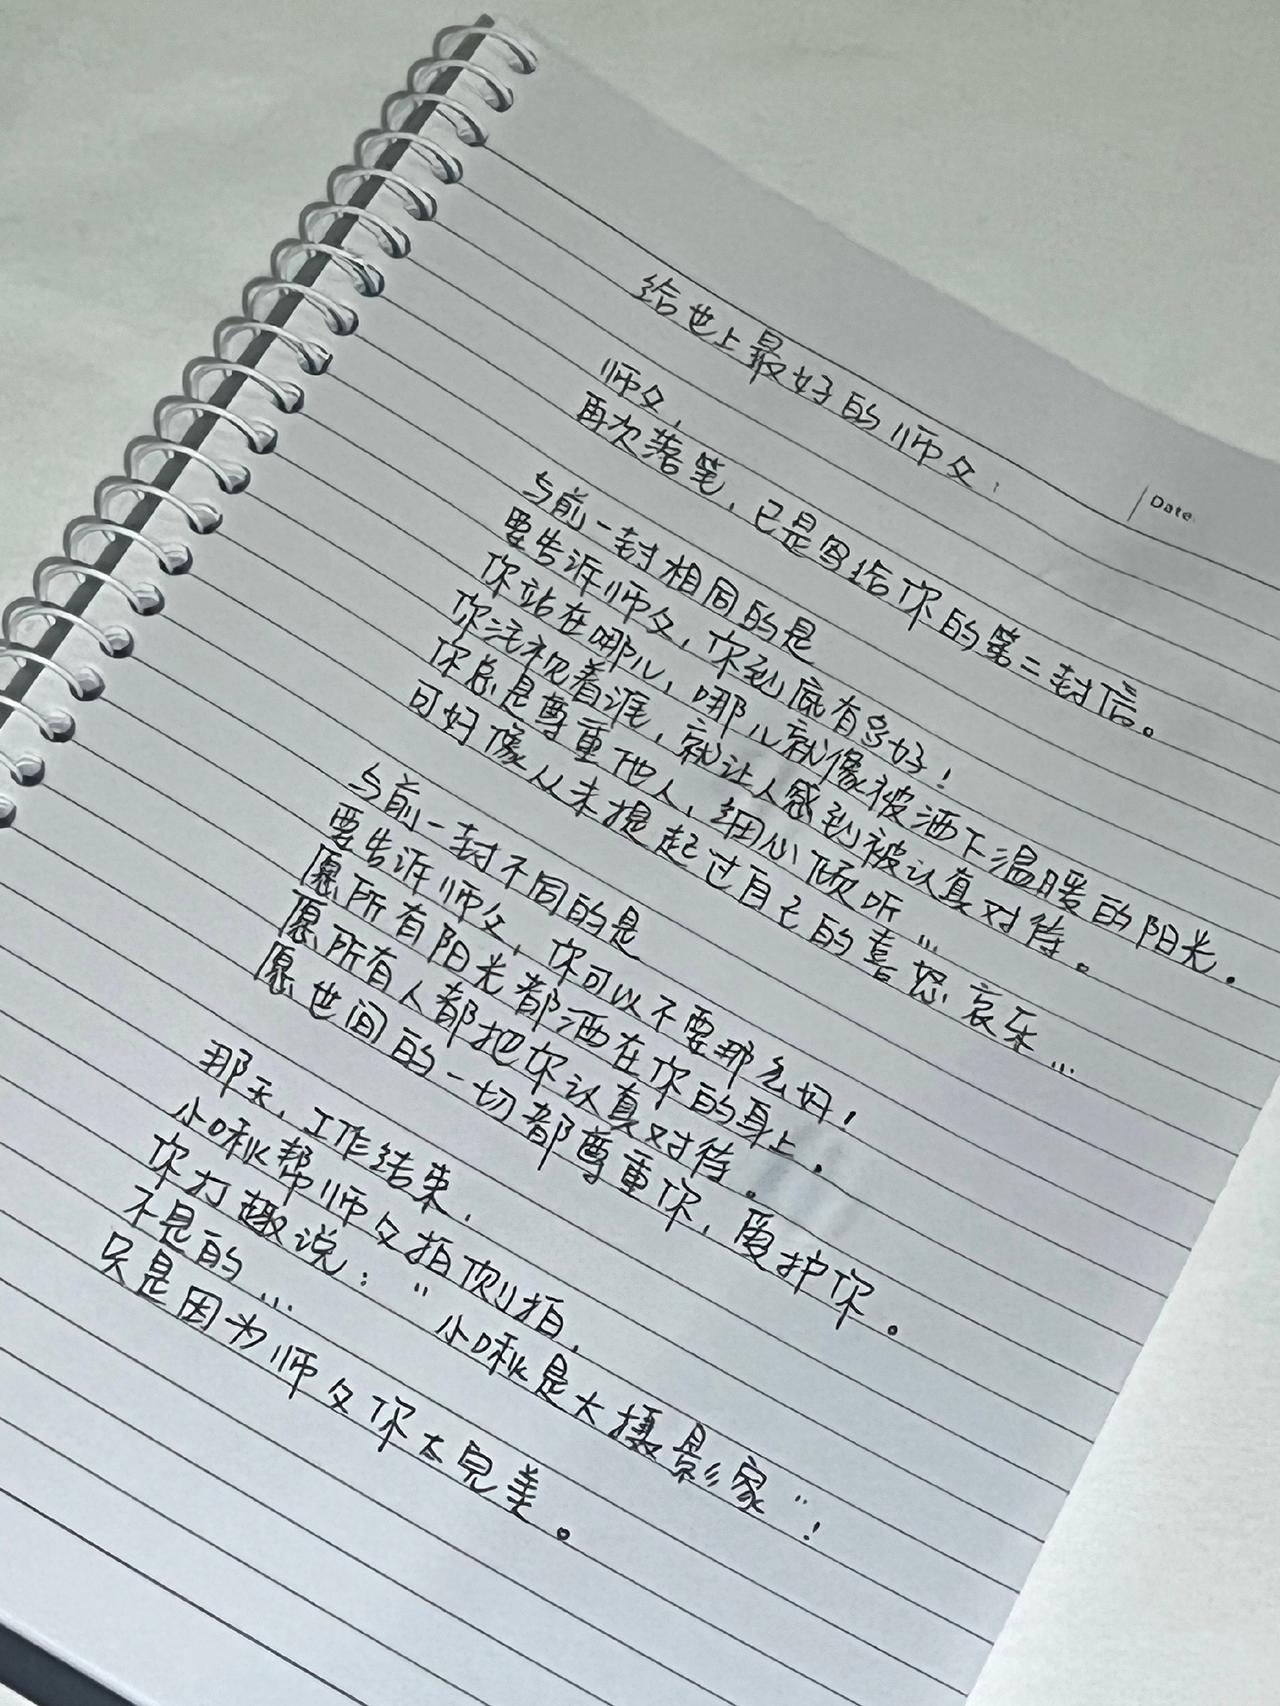 给世上最好的师父：
Date.
师父，
再次落笔，已是写给你的第二封信。
与前一封相同的是
要告诉师父，你到底有多好！
你站在哪儿，哪儿就像被洒下温暖的阳光。
你注视着谁，就让人感到被认真对待。
你总是尊重他人，细心倾听…
可好像从未提起过自己的喜怒哀乐…
与前一封不同的是
要告诉师父，你可以不要那么好！
愿所有阳光都洒在你的身上，
愿所有人都把你认真对待。
愿世间的一切都尊重你，爱护你。
那天，工作结束，
小啾帮师父拍侧拍，
你打趣说：“小啾是大摄影家”！
不是的…
只是因为师父你太完美。